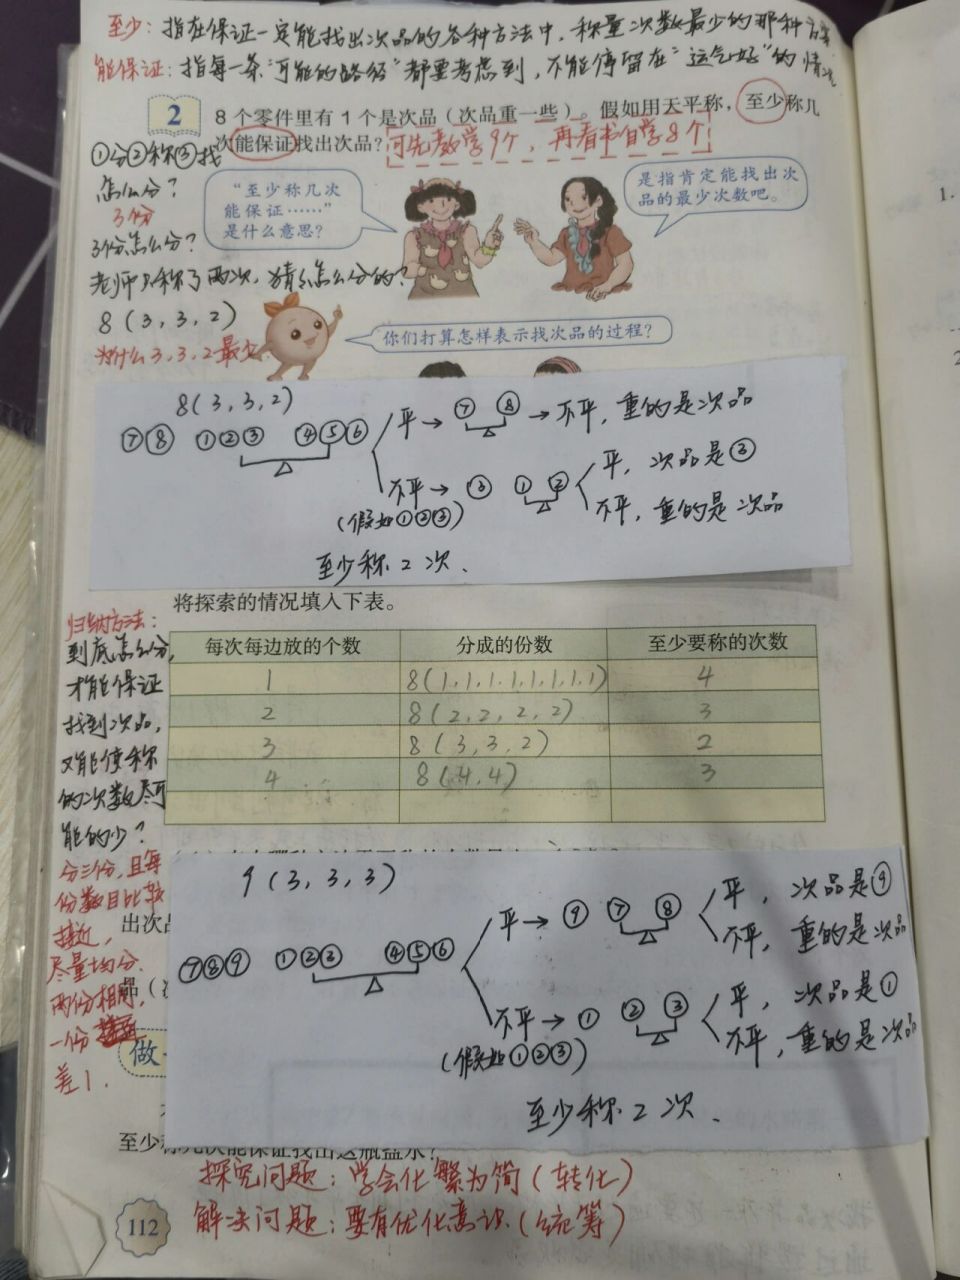 至少：指在保证一定能找出次品的各种方法中，称量次数最少的那种方案
能保证：指每一条“可能的路径”都要考虑到，不能停留在“运气好”的情况
2
8个零件里有1个是次品（次品重一些）。假如用天平称，至少称几
次能保证找出次品？
可先教学9个，再看书自学8个
①分②称③找
怎么分？
3份
3份怎么分？
老师只称了两次，猜猜怎么分的？
8(3,3,2)
为什么3,3,2最少
“至少称几次
能保证……”
是什么意思？
是指肯定能找出次
品的最少次数吧。
你们打算怎样表示找次品的过程？
8(3,3,2)
⑦⑧ ①②③ ④⑤⑥
平→ ⑦ ⑧ →不平，重的是次品
不平→ ③ ① ②
平，次品是③
不平，重的是次品
(假如①②③)
至少称2次．
将探索的情况填入下表。
每次每边放的个数 分成的份数 至少要称的次数
1 8(1,1,1,1,1,1,1,1) 4
2 8(2,2,2,2) 3
3 8(3,3,2) 2
4 8(4,4) 3
归纳方法：
到底怎么分，
才能保证
找到次品，
又能使称
的次数尽可
能的少？
分三份，且每
份数目比较
接近，
尽量均分．
两份相同，
一份
差1．
9(3,3,3)
⑦⑧⑨ ①②③ ④⑤⑥
平→ ⑨ ⑦ ⑧
平，次品是⑨
不平，重的是次品
不平→ ① ② ③
平，次品是①
不平，重的是次品
(假如①②③)
至少称2次．
出次品
做一
至少称几次能保证找出这瓶盐水？
探究问题：学会化繁为简（转化）
解决问题：要有优化意识．（统筹）
112
1.